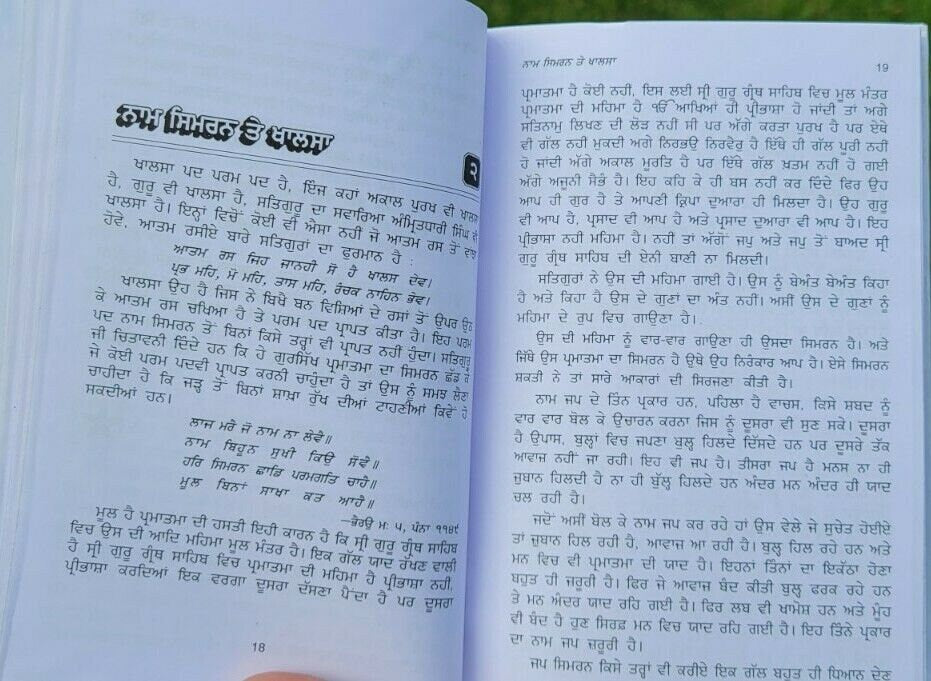 ਨਾਮ ਸਿਮਰਨ ਤੇ ਖਾਲਸਾ
੨
ਖਾਲਸਾ ਪਦ ਪਰਮ ਪਦ ਹੈ, ਇੰਜ ਕਹਾਂ ਅਕਾਲ ਪੁਰਖ ਵੀ ਖਾਲਸਾ
ਹੈ, ਗੁਰੂ ਵੀ ਖਾਲਸਾ ਹੈ, ਸਤਿਗੁਰੂ ਦਾ ਸਵਾਰਿਆ ਅੰਮ੍ਰਿਤਧਾਰੀ ਸਿੰਘ ਵੀ
ਖਾਲਸਾ ਹੈ। ਇਨ੍ਹਾਂ ਵਿਚੋਂ ਕੋਈ ਵੀ ਐਸਾ ਨਹੀਂ ਜੋ ਆਤਮ ਰਸ ਤੋਂ ਵਾਂਝਾ
ਹੋਵੇ, ਆਤਮ ਰਸੀਏ ਬਾਰੇ ਸਤਿਗੁਰਾਂ ਦਾ ਫੁਰਮਾਨ ਹੈ :
ਆਤਮ ਰਸ ਜਿਹ ਜਾਨਹੀ ਸੋ ਹੈ ਖਾਲਸ ਦੇਵ।
ਪ੍ਰਭ ਮਹਿ, ਮੋ ਮਹਿ, ਤਾਸ ਮਹਿ, ਰੰਚਕ ਨਾਹਿਨ ਭੇਵ।
ਖਾਲਸਾ ਉਹ ਹੈ ਜਿਸ ਨੇ ਬਿਖੈ ਬਨ ਵਿਸ਼ਿਆਂ ਦੇ ਰਸਾਂ ਤੋਂ ਉਪਰ ਉਠ
ਕੇ ਆਤਮ ਰਸ ਚਖਿਆ ਹੈ ਤੇ ਪਰਮ ਪਦ ਪ੍ਰਾਪਤ ਕੀਤਾ ਹੈ। ਇਹ ਪਰਮ
ਪਦ ਨਾਮ ਸਿਮਰਨ ਤੋਂ ਬਿਨਾਂ ਕਿਸੇ ਤਰ੍ਹਾਂ ਵੀ ਪ੍ਰਾਪਤ ਨਹੀਂ ਹੁੰਦਾ। ਸਤਿਗੁਰੂ
ਜੀ ਚਿਤਾਵਨੀ ਦਿੰਦੇ ਹਨ ਕਿ ਹੇ ਗੁਰਸਿੱਖ ਪ੍ਰਮਾਤਮਾ ਦਾ ਸਿਮਰਨ ਛੱਡ ਕੇ
ਜੇ ਕੋਈ ਪਰਮ ਪਦਵੀ ਪ੍ਰਾਪਤ ਕਰਨੀ ਚਾਹੁੰਦਾ ਹੈ ਤਾਂ ਉਸ ਨੂੰ ਸਮਝ ਲੈਣਾ
ਚਾਹੀਦਾ ਹੈ ਕਿ ਜੜ੍ਹ ਤੋਂ ਬਿਨਾਂ ਸ਼ਾਖਾ ਰੁੱਖ ਦੀਆਂ ਟਾਹਣੀਆਂ ਕਿਵੇਂ ਹੋ
ਸਕਦੀਆਂ ਹਨ।
ਲਾਜ ਮਰੈ ਜੋ ਨਾਮ ਨਾ ਲੇਵੈ॥
ਨਾਮ ਬਿਹੂਨ ਸੁਖੀ ਕਿਉ ਸੋਵੈ॥
ਹਰਿ ਸਿਮਰਨ ਛਾਡਿ ਪਰਮਗਤਿ ਚਾਹੈ॥
ਮੂਲ ਬਿਨਾਂ ਸਾਖਾ ਕਤ ਆਹੈ॥
—ਭੈਰਉ ਮ: ੫, ਪੰਨਾ ੧੧੪੯
ਮੂਲ ਹੈ ਪ੍ਰਮਾਤਮਾ ਦੀ ਹਸਤੀ ਇਹੀ ਕਾਰਨ ਹੈ ਕਿ ਸ੍ਰੀ ਗੁਰੂ ਗ੍ਰੰਥ ਸਾਹਿਬ
ਵਿਚ ਉਸ ਦੀ ਆਦਿ ਮਹਿਮਾ ਮੂਲ ਮੰਤਰ ਹੈ। ਇਕ ਗੱਲ ਯਾਦ ਰੱਖਣ ਵਾਲੀ
ਹੈ ਸ੍ਰੀ ਗੁਰੂ ਗ੍ਰੰਥ ਸਾਹਿਬ ਵਿਚ ਪ੍ਰਮਾਤਮਾ ਦੀ ਮਹਿਮਾ ਹੈ ਪ੍ਰੀਭਾਸ਼ਾ ਨਹੀ,
ਪ੍ਰੀਭਾਸ਼ਾ ਕਰਦਿਆਂ ਇਕ ਵਰਗਾ ਦੂਸਰਾ ਦੱਸਣਾ ਪੈਂਦਾ ਹੈ ਪਰ ਦੂਸਰਾ
18
ਨਾਮ ਸਿਮਰਨ ਤੇ ਖਾਲਸਾ
19
ਪ੍ਰਮਾਤਮਾ ਹੈ ਕੋਈ ਨਹੀਂ, ਇਸ ਲਈ ਸ੍ਰੀ ਗੁਰੂ ਗ੍ਰੰਥ ਸਾਹਿਬ ਵਿਚ ਮੂਲ ਮੰਤਰ
ਪ੍ਰਮਾਤਮਾ ਦੀ ਮਹਿਮਾ ਹੈ ੴ ਆਖਿਆਂ ਹੀ ਪ੍ਰੀਭਾਸ਼ਾ ਹੋ ਜਾਂਦੀ ਤਾਂ ਅਗੇ
ਸਤਿਨਾਮੁ ਲਿਖਣ ਦੀ ਲੋੜ ਨਹੀ ਸੀ ਪਰ ਅੱਗੇ ਕਰਤਾ ਪੁਰਖ ਹੈ ਪਰ ਏਥੇ
ਵੀ ਗੱਲ ਨਹੀ ਮੁਕਦੀ ਅਗੇ ਨਿਰਭਉ ਨਿਰਵੈਰੁ ਹੈ ਇੱਥੇ ਹੀ ਗੱਲ ਪੂਰੀ ਨਹੀਂ
ਹੋ ਜਾਂਦੀ ਅੱਗੇ ਅਕਾਲ ਮੂਰਤਿ ਹੈ ਪਰ ਇੱਥੇ ਗੱਲ ਖਤਮ ਨਹੀਂ ਹੋ ਗਈ
ਅੱਗੇ ਅਜੂਨੀ ਸੈਭੰ ਹੈ। ਇਹ ਕਹਿ ਕੇ ਹੀ ਬਸ ਨਹੀਂ ਕਰ ਦਿੰਦੇ ਫਿਰ ਉਹ
ਆਪ ਹੀ ਗੁਰ ਹੈ ਤੇ ਆਪਣੀ ਕ੍ਰਿਪਾ ਦੁਆਰਾ ਹੀ ਮਿਲਦਾ ਹੈ। ਉਹ ਗੁਰੂ
ਵੀ ਆਪ ਹੈ, ਪ੍ਰਸਾਦ ਵੀ ਆਪ ਹੈ ਅਤੇ ਪ੍ਰਸਾਦ ਦੁਆਰਾ ਵੀ ਆਪ ਹੈ। ਇਹ
ਪ੍ਰੀਭਾਸ਼ਾ ਨਹੀ ਮਹਿਮਾ ਹੈ। ਨਹੀਂ ਤਾਂ ਅੱਗੋਂ ਜਪੁ ਅਤੇ ਜਪੁ ਤੋਂ ਬਾਅਦ ਸ੍ਰੀ
ਗੁਰੂ ਗ੍ਰੰਥ ਸਾਹਿਬ ਦੀ ਏਨੀ ਬਾਣੀ ਨਾ ਮਿਲਦੀ।
ਸਤਿਗੁਰਾਂ ਨੇ ਉਸ ਦੀ ਮਹਿਮਾ ਗਾਈ ਹੈ। ਉਸ ਨੂੰ ਬੇਅੰਤ ਬੇਅੰਤ ਕਿਹਾ
ਹੈ ਅਤੇ ਕਿਹਾ ਹੈ ਉਸ ਦੇ ਗੁਣਾਂ ਦਾ ਅੰਤ ਨਹੀਂ। ਅਸੀਂ ਉਸ ਦੇ ਗੁਣਾਂ ਨੂੰ
ਮਹਿਮਾ ਦੇ ਰੂਪ ਵਿਚ ਗਾਉਣਾ ਹੈ।
ਉਸ ਦੀ ਮਹਿਮਾ ਨੂੰ ਵਾਰ-ਵਾਰ ਗਾਉਣਾ ਹੀ ਉਸਦਾ ਸਿਮਰਨ ਹੈ। ਅਤੇ
ਜਿੱਥੇ ਉਸ ਪ੍ਰਮਾਤਮਾ ਦਾ ਸਿਮਰਨ ਹੈ ਉਥੇ ਉਹ ਨਿਰੰਕਾਰ ਆਪ ਹੈ। ਏਸੇ ਸਿਮਰਨ
ਸ਼ਕਤੀ ਨੇ ਤਾਂ ਸਾਰੇ ਆਕਾਰਾਂ ਦੀ ਸਿਰਜਣਾ ਕੀਤੀ ਹੈ।
ਨਾਮ ਜਪ ਦੇ ਤਿੰਨ ਪ੍ਰਕਾਰ ਹਨ, ਪਹਿਲਾ ਹੈ ਵਾਚਸ, ਕਿਸੇ ਸ਼ਬਦ ਨੂੰ
ਵਾਰ ਵਾਰ ਬੋਲ ਕੇ ਉਚਾਰਨ ਕਰਨਾ ਜਿਸ ਨੂੰ ਦੂਸਰਾ ਵੀ ਸੁਣ ਸਕੇ। ਦੂਸਰਾ
ਹੈ ਉਪਾਸ, ਬੁਲ੍ਹਾਂ ਵਿਚ ਜਪਣਾ ਬੁਲ੍ਹ ਹਿਲਦੇ ਦਿੱਸਦੇ ਹਨ ਪਰ ਦੂਸਰੇ ਤੱਕ
ਆਵਾਜ਼ ਨਹੀਂ ਜਾ ਰਹੀ। ਇਹ ਵੀ ਜਪ ਹੈ। ਤੀਸਰਾ ਜਪ ਹੈ ਮਨਸ ਨਾ ਹੀ
ਜ਼ੁਬਾਨ ਹਿਲਦੀ ਹੈ ਨਾ ਹੀ ਬੁੱਲ੍ਹ ਹਿਲਦੇ ਹਨ ਅੰਦਰ ਮਨ ਅੰਦਰ ਹੀ ਯਾਦ
ਚਲ ਰਹੀ ਹੈ।
ਜਦੋਂ ਅਸੀਂ ਬੋਲ ਕੇ ਨਾਮ ਜਪ ਕਰ ਰਹੇ ਹਾਂ ਉਸ ਵੇਲੇ ਜੇ ਸੁਚੇਤ ਹੋਈਏ
ਤਾਂ ਜ਼ੁਬਾਨ ਹਿਲ ਰਹੀ ਹੈ, ਆਵਾਜ਼ ਆ ਰਹੀ ਹੈ। ਬੁਲ੍ਹ ਹਿਲ ਰਹੇ ਹਨ ਅਤੇ
ਮਨ ਵਿਚ ਵੀ ਪ੍ਰਮਾਤਮਾ ਦੀ ਯਾਦ ਹੈ। ਇਹਨਾਂ ਤਿੰਨਾਂ ਦਾ ਇਕੱਠਾ ਹੋਣਾ
ਬਹੁਤ ਹੀ ਜ਼ਰੂਰੀ ਹੈ। ਫਿਰ ਜੇ ਆਵਾਜ਼ ਬੰਦ ਕੀਤੀ ਬੁਲ੍ਹ ਫਰਕ ਰਹੇ ਹਨ
ਤੇ ਮਨ ਅੰਦਰ ਯਾਦ ਰਹਿ ਗਈ ਹੈ। ਫਿਰ ਲਬ ਵੀ ਖਾਮੋਸ਼ ਹਨ ਅਤੇ ਮੂੰਹ
ਵੀ ਬੰਦ ਹੈ ਹੁਣ ਸਿਰਫ਼ ਮਨ ਵਿਚ ਯਾਦ ਰਹਿ ਗਈ ਹੈ। ਇਹ ਤਿੰਨੇ ਪ੍ਰਕਾਰ
ਦਾ ਨਾਮ ਜਪ ਜ਼ਰੂਰੀ ਹੈ।
ਜਪ ਸਿਮਰਨ ਕਿਸੇ ਤਰ੍ਹਾਂ ਵੀ ਕਰੀਏ ਇਕ ਗੱਲ ਬਹੁਤ ਹੀ ਧਿਆਨ ਦੇਣ